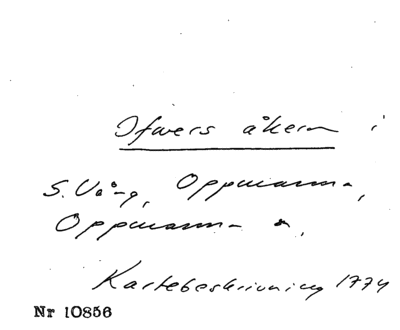 Ifvers åkern i
S. Vång, Oppmanna,
Oppmanna s.
Kartebeskrivning 1774
Nr 10856